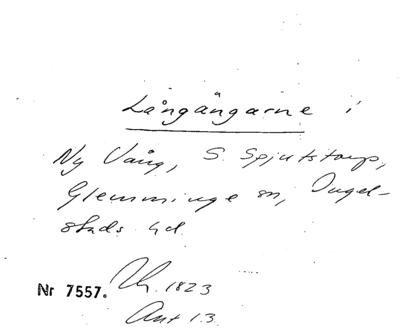 Långängarne i
Ny Vång, S. Spjutstorp,
Glemminge sn, Ingel-
stads hd.
Nr 7557. 1823
Ant 13